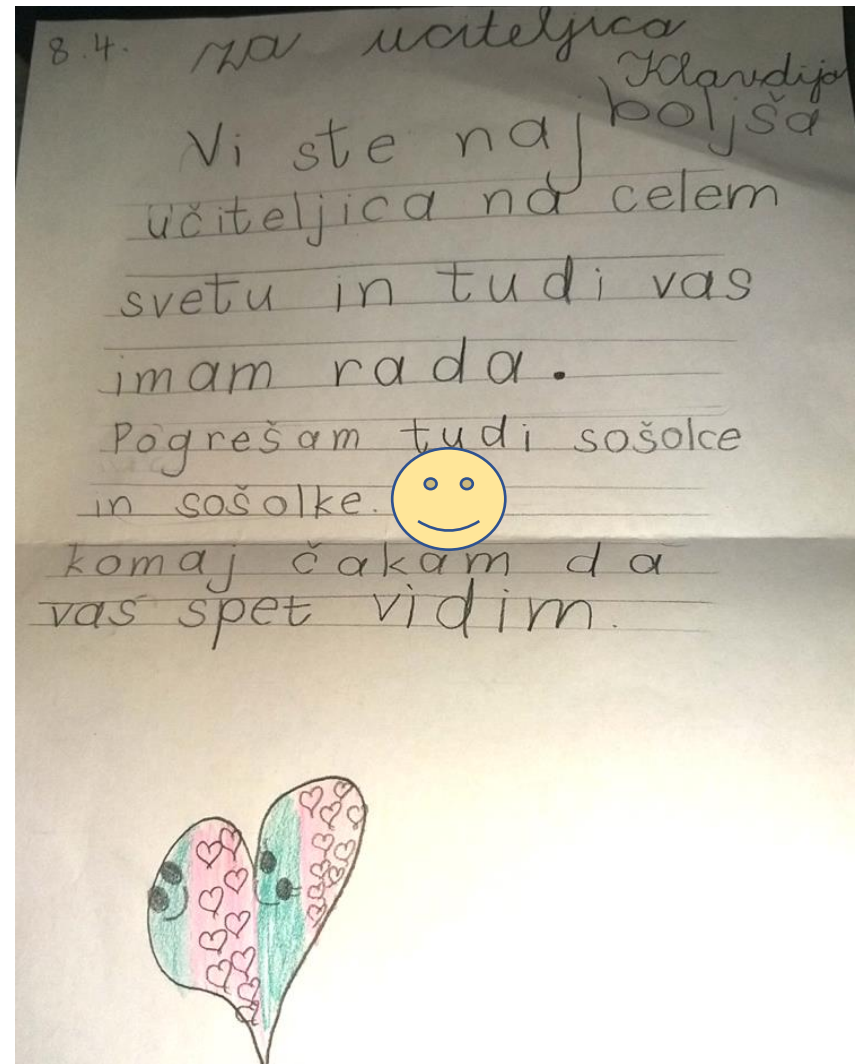 8.4. za uciteljica
Klavdija
Vi ste najboljša
učiteljica na celem
svetu in tudi vas
imam rada.
Pogrešam tudi sošolce
in sošolke.
komaj čakam da
vas spet vidim.